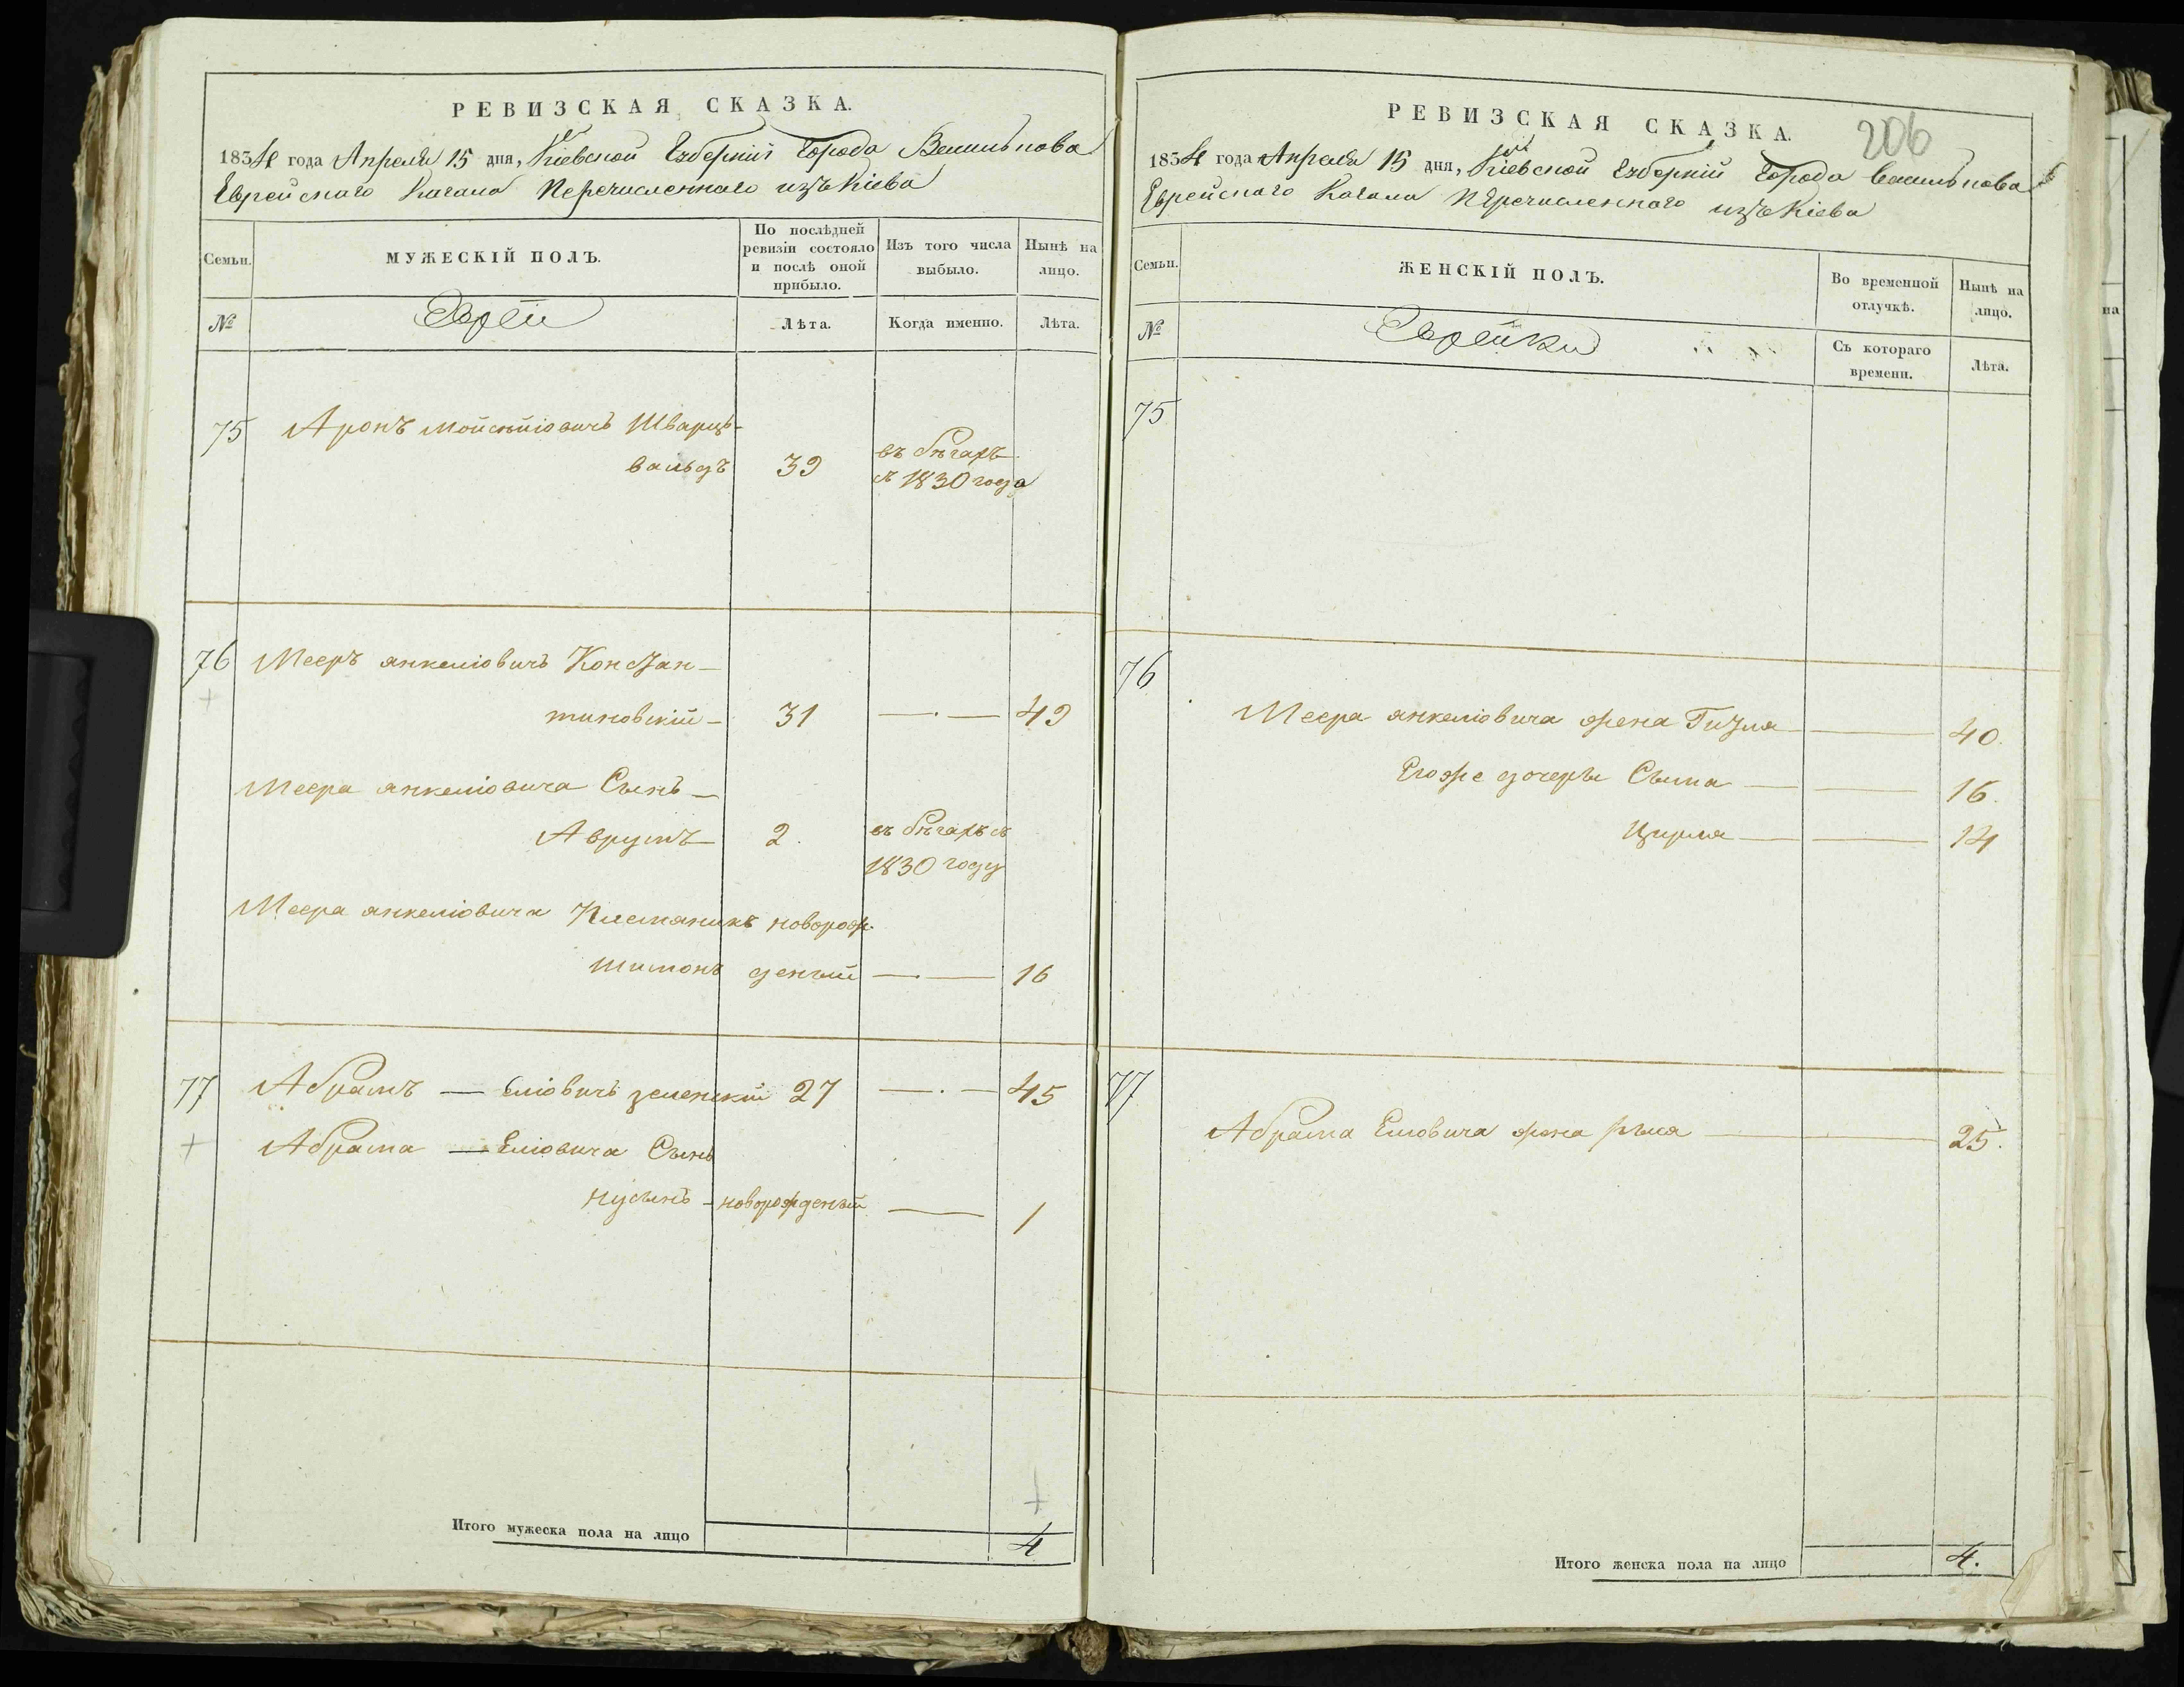 РЕВИЗСКАЯ СКАЗКА.
1834 года Апреля 15 дня, Кіевской Губерніи Города Василькова
Еврейскаго Кагала Перечисленнаго изъ Кіева
Семьи.
МУЖЕСКІЙ ПОЛЪ.
По послѣдней ревизіи состояло и послѣ оной прибыло.
Изъ того числа выбыло.
Нынѣ на лицо.
№
Евреи
Лѣта.
Когда именно.
Лѣта.
75 Аронъ Мойсѣйіовичъ Шварцъ-
вальдъ 39 въ бѣгахъ
съ 1830 года
76 Мееръ янкеліовичъ Констан-
тиновскій 31 — 49
Меера янкеліовича Сынъ
Аврумъ 2. въ бѣгахъ съ
1830 году
Меера янкеліовича Племяникъ новорож-
шимонъ деный — 16
77 Абрамъ — еліовичъ зеленскій 27 — 45
Абрама — Еліовича Сынъ
нусынъ - новорожденый — 1
Итого мужеска пола на лицо 4
РЕВИЗСКАЯ СКАЗКА.
206
1834 года Апреля 15 дня, Кіевской Губерніи Города Василькова
Еврейскаго Кагала Перечисленнаго изъ Кіева
Семьи.
ЖЕНСКІЙ ПОЛЪ.
Во временной отлучкѣ.
Нынѣ на лицо.
№
Еврейки
Съ котораго времени.
Лѣта.
75
76
Меера янкеліовича жена Гизля — 40.
Егоже дочеры Сыма — 16.
Цирля — 14
77
Абрама Еліовича жена рыся — 25.
Итого женска пола на лицо 4.